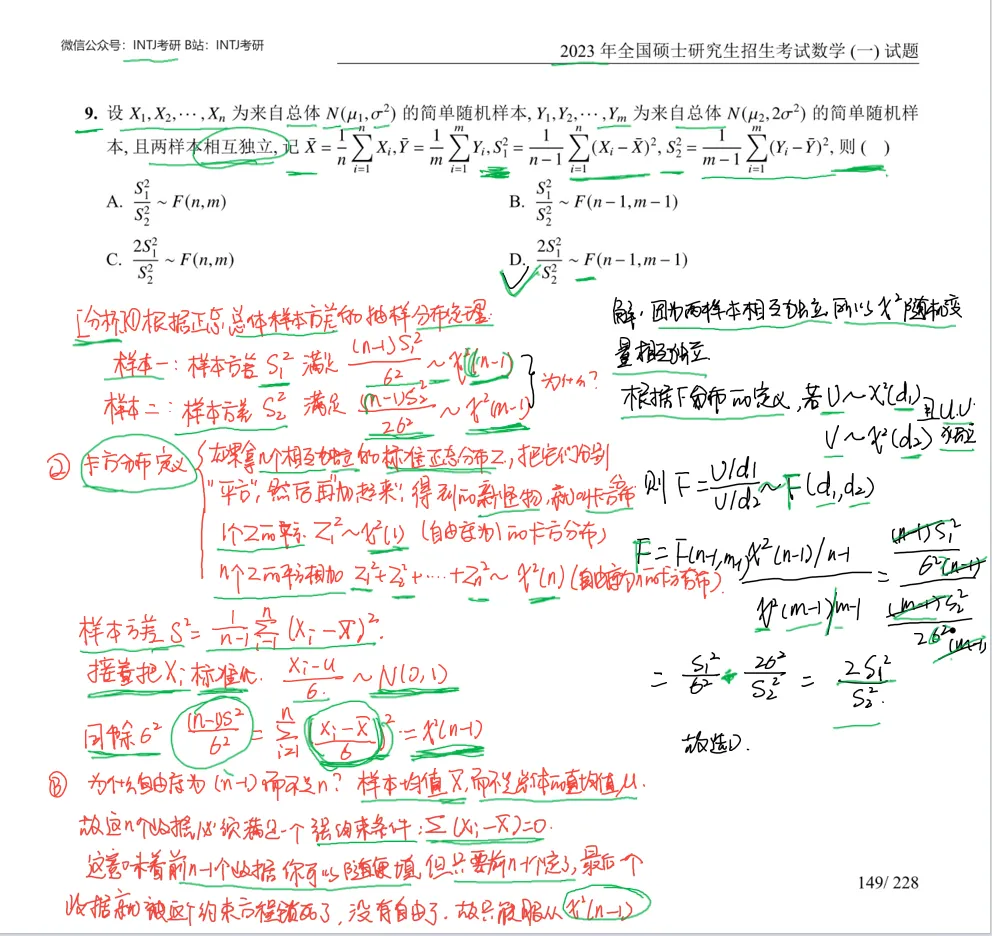 微信公众号：INTJ考研 B站：INTJ考研
2023 年全国硕士研究生招生考试数学 (一) 试题
9. 设 X₁, X₂, ⋯, Xₙ 为来自总体 N(μ₁, σ²) 的简单随机样本, Y₁, Y₂, ⋯, Yₘ 为来自总体 N(μ₂, 2σ²) 的简单随机样
本, 且两样本相互独立, 记 X̄ = 1/n ∑ᵢ₌₁ⁿ Xᵢ, Ȳ = 1/m ∑ᵢ₌₁ᵐ Yᵢ, S₁² = 1/(n−1) ∑ᵢ₌₁ⁿ (Xᵢ − X̄)², S₂² = 1/(m−1) ∑ᵢ₌₁ᵐ (Yᵢ − Ȳ)², 则 ( )
A. S₁²/S₂² ~ F(n, m)
B. S₁²/S₂² ~ F(n−1, m−1)
C. 2S₁²/S₂² ~ F(n, m)
D. 2S₁²/S₂² ~ F(n−1, m−1)
[分析]①根据正态总体样本方差的抽样分布定理
样本一：样本方差 S₁² 满足 (n-1)S₁²/σ² ~ χ²(n-1)
样本二：样本方差 S₂² 满足 (m-1)S₂²/2σ² ~ χ²(m-1)
为什么？
② 卡方分布定义
如果拿n个相互独立的标准正态分布Z，把它们分别
"平方"，然后再"加起来"，得到的新怪物，就叫卡方分布
1个Z的平方 Z₁² ~ χ²(1) (自由度为1的卡方分布)
n个Z的平方相加 Z₁²+Z₂²+⋯+Zₙ² ~ χ²(n) (自由度为n的卡方分布)
样本方差 S² = 1/(n-1) ∑ᵢ₌₁ⁿ (Xᵢ-X̄)².
接着把 Xᵢ 标准化. (Xᵢ-u)/σ ~ N(0,1)
同除σ² (n-1)S²/σ² = ∑ᵢ₌₁ⁿ ((Xᵢ-X̄)/σ)² = χ²(n-1)
③ 为什么自由度为 (n-1) 而不是n？ 样本均值X̄，而不是总体的真均值μ.
故这n个数据必须满足一个强约束条件：∑(Xᵢ-X̄)=0.
这意味着前n-1个数据你可以随便填，但只要前n-1个定了，最后一个
数据就被这个约束方程锁死了，没有自由了. 故只能服从 χ²(n-1)
解：因为两样本相互独立，所以χ²随机变
量相互独立
根据F分布的定义，若 U~χ²(d₁)
V~χ²(d₂)
且U,V
独立
则 F = U/d₁ / V/d₂ ~ F(d₁,d₂)
F = F(n-1,m-1) χ²(n-1)/n-1 / χ²(m-1)/m-1 = (n-1)S₁²/σ²(n-1) / (m-1)S₂²/2σ²(m-1)
= S₁²/σ² · 2σ²/S₂² = 2S₁²/S₂².
故选D.
149/ 228